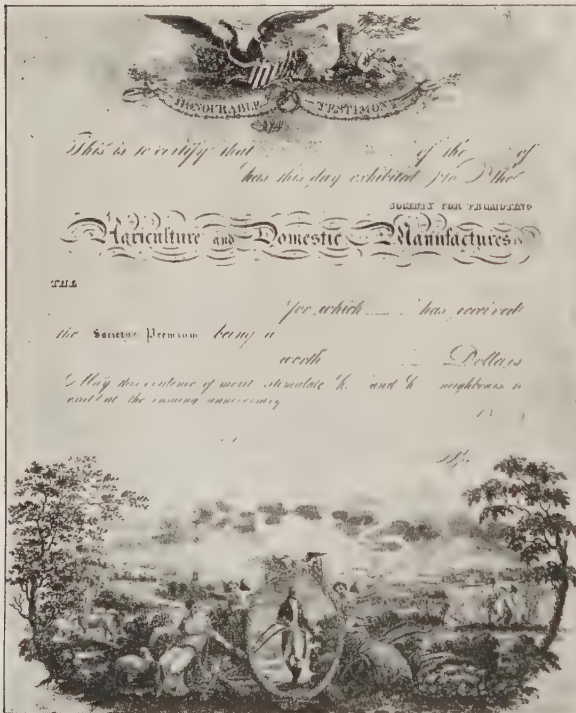 HONOURABLE TESTIMONY
This is to certify that of the of
has this day exhibited
SOCIETY FOR PROMOTING
Agriculture and Domestic Manufactures
THE
for which has received
the Societys Premium being a
worth Dollars
May this evidence of merit stimulate h and h neighbours to
excel at the ensuing anniversary